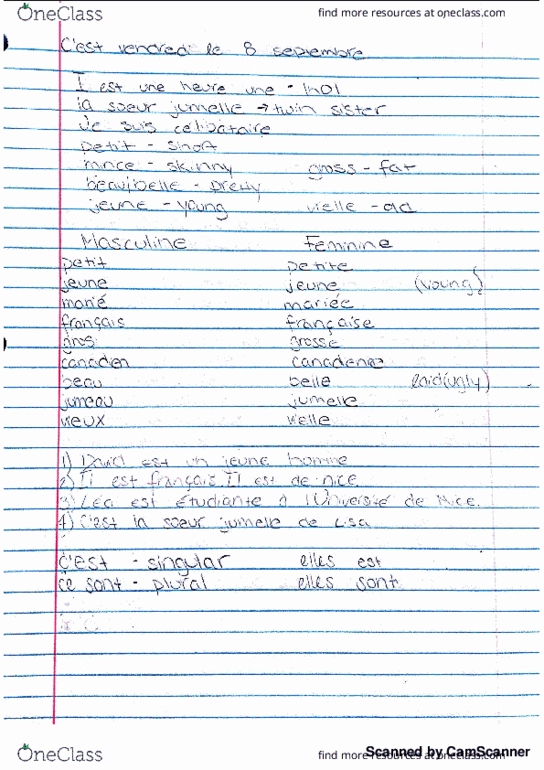 OneClass find more resources at oneclass.com
C'est vendredi le 8 septembre
I est une heure une - 1h01
la soeur jumelle → twin sister
Je suis célibataire
petit - short
mince - skinny gross - fat
beau/belle - pretty
jeune - young vielle - old
Masculine Feminine
petit petite
jeune jeune (young)
marié mariée
français française
gros grosse
canadien
beau belle laid(ugly)
jumeau jumelle
vieux vielle
1) David est un jeune homme
2) Il est français Il est de nice
3) Léa est étudiante à l'Université de Nice.
4) C'est la soeur jumelle de Lisa
C'est - singular elles est
ce sont - plural elles sont
OneClass find more resources at oneclass.com
Scanned by CamScanner